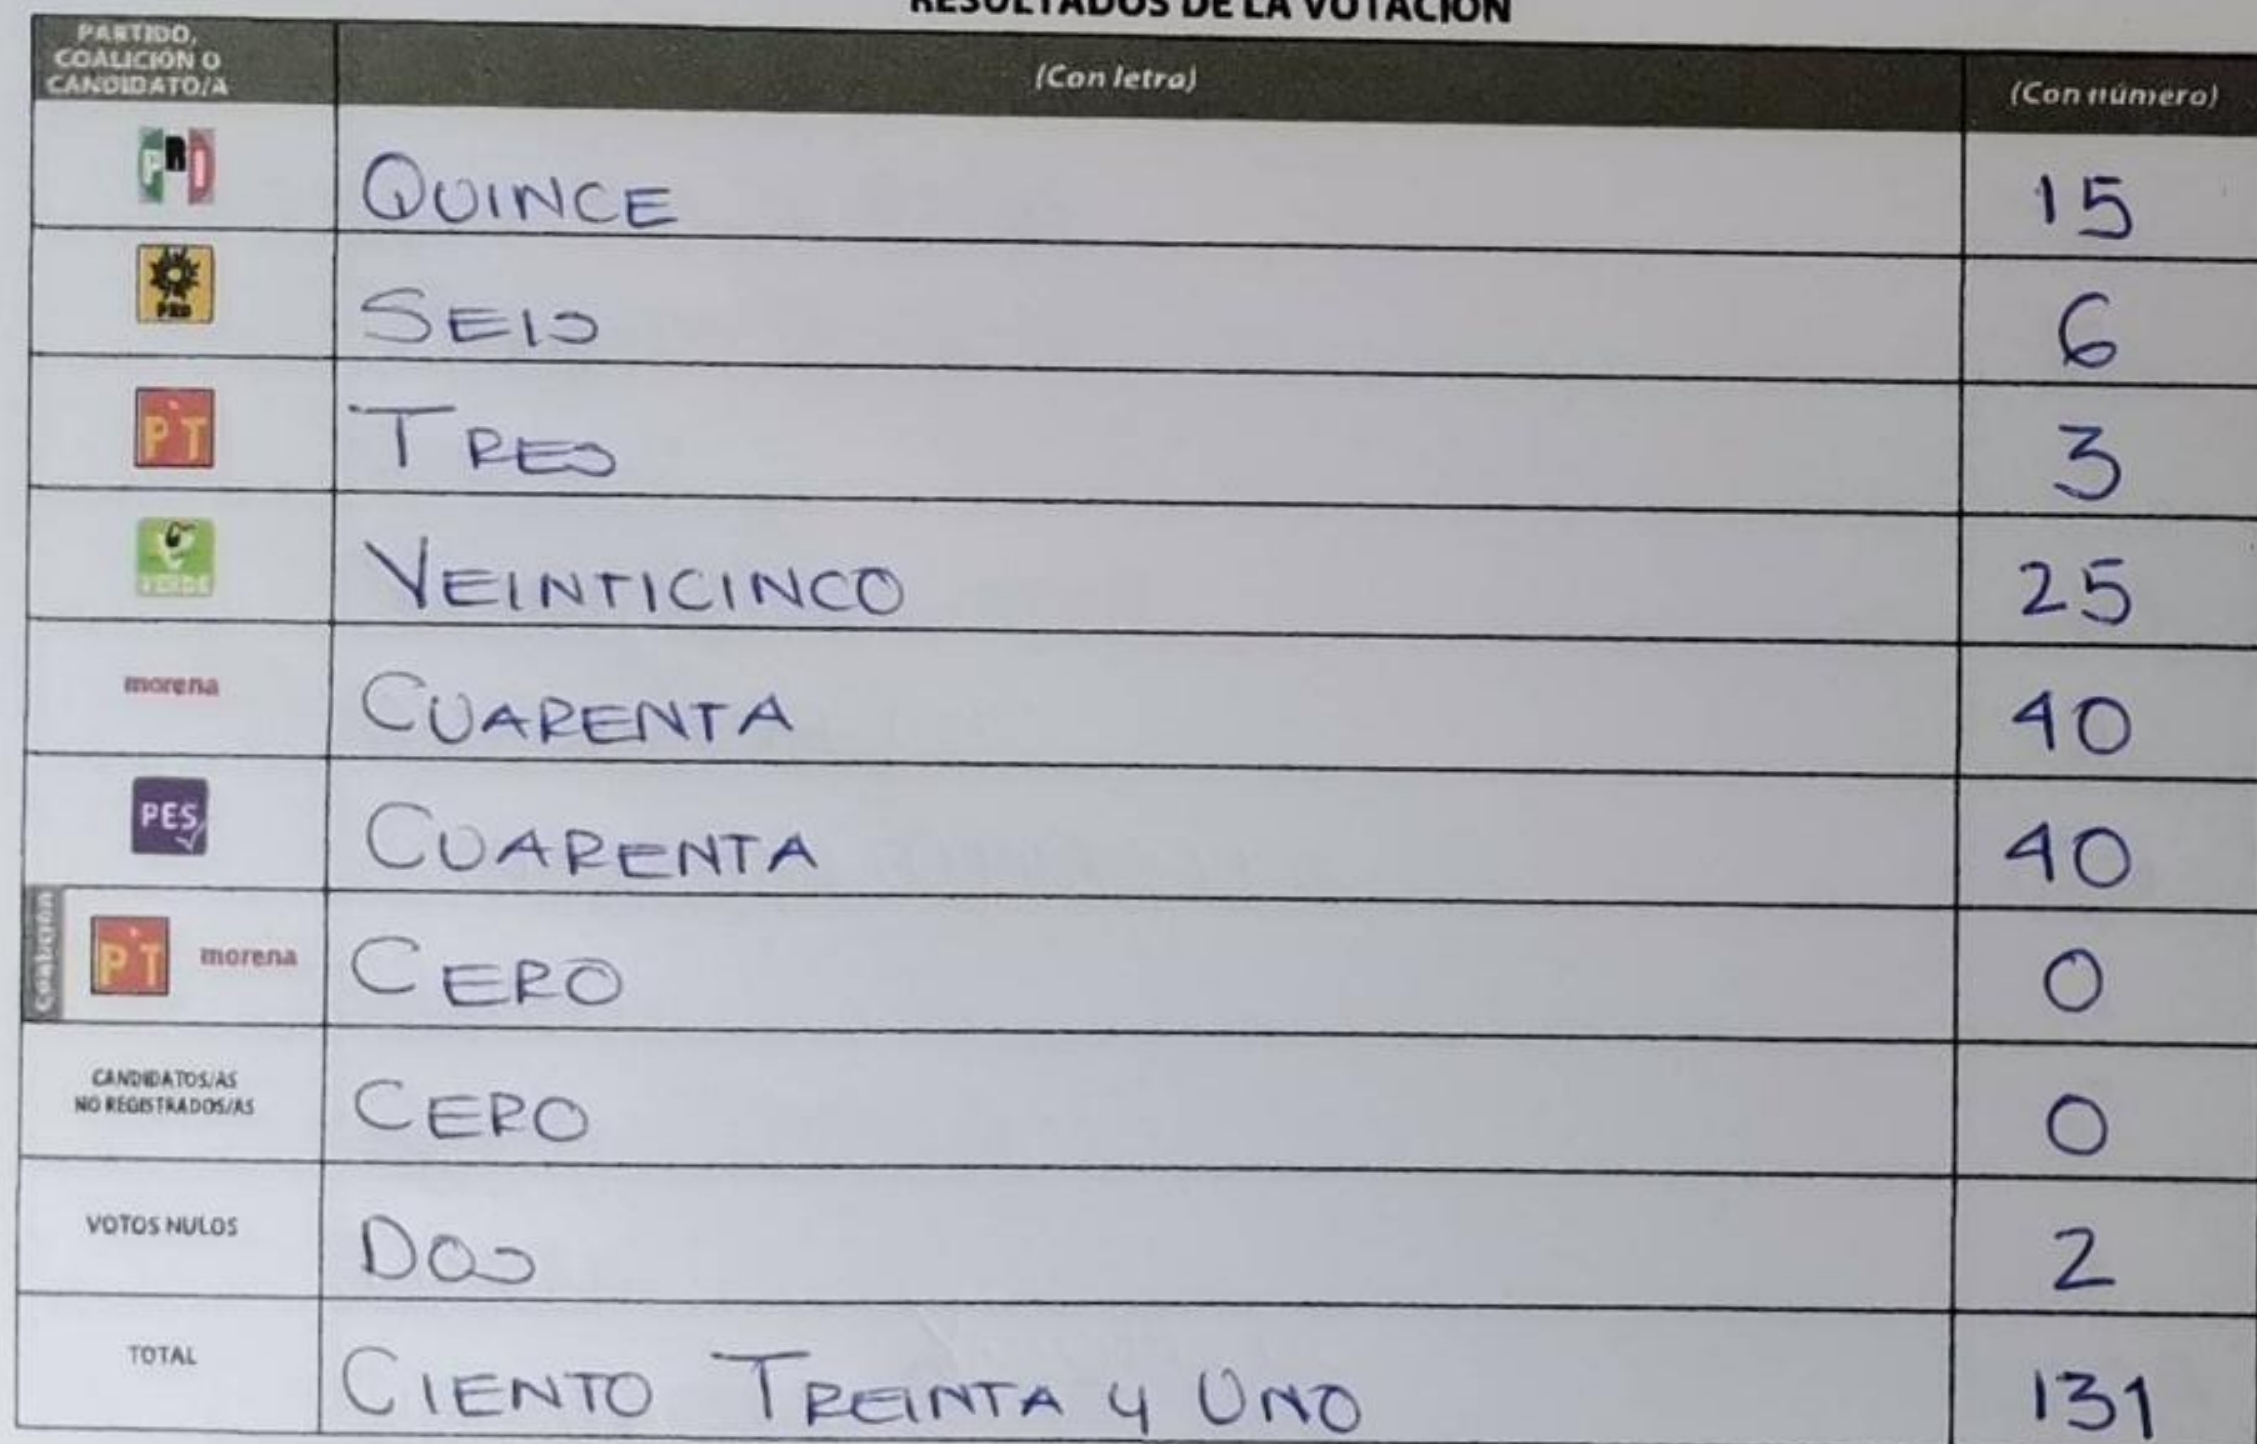 RESULTADOS DE LA VOTACIÓN
PARTIDO,
COALICIÓN O
CANDIDATO/A
(Con letra)
(Con número)
PRI
QUINCE
15
PRD
SEIS
6
PT
TRES
3
VERDE
VEINTICINCO
25
morena
CUARENTA
40
PES
CUARENTA
40
Coalición
PT
morena
CERO
0
CANDIDATOS/AS
NO REGISTRADOS/AS
CERO
0
VOTOS NULOS
DOS
2
TOTAL
CIENTO TREINTA y UNO
131